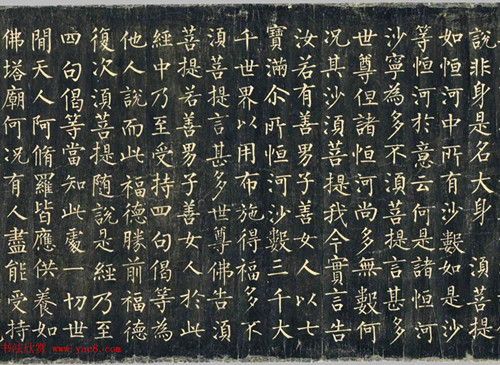 說非身是名大身 須菩提
如恒河中所有沙數如是沙
等恒河於意云何是諸恒河
沙寧為多不須菩提言甚多
世尊但諸恒河尚多無數何
況其沙須菩提我今實言告
汝若有善男子善女人以七
寶滿尒所恒河沙數三千大
千世界以用布施得福多不
須菩提言甚多世尊佛告須
菩提若善男子善女人於此
經中乃至受持四句偈等為
他人說而此福德勝前福德
復次須菩提隨說是經乃至
四句偈等當知此處一切世
間天人阿脩羅皆應供養如
佛塔廟何況有人盡能受持
书法欣赏 www.yac8.com